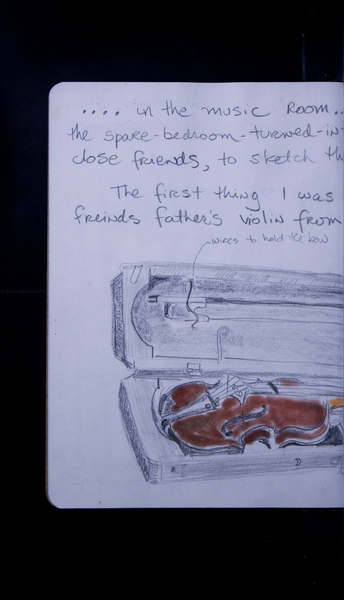 .... in the music Room..
the spare-bedroom-turned-in
close friends, to sketch th
The first thing I was
freinds father's violin from
wires to hold the bow
D